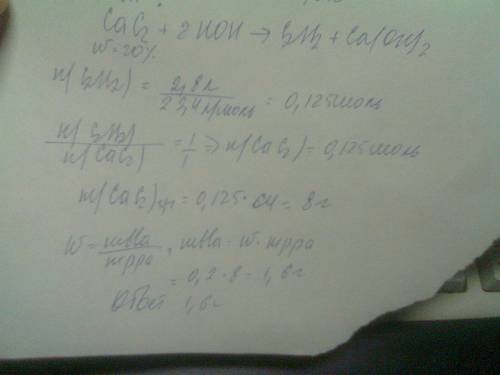 CaC2 + 2HOH → C2H2 + Ca(OH)2
W=20%
n(C2H2) = 2,8л / 22,4л/моль = 0,125моль
n(C2H2) / n(CaC2) = 1/1 => n(CaC2) = 0,125моль
m(CaC2) = 0,125·64 = 8г
W = mв-ва / mр-ра, mв-ва = W·mр-ра
= 0,2·8 = 1,6г
Ответ 1,6г